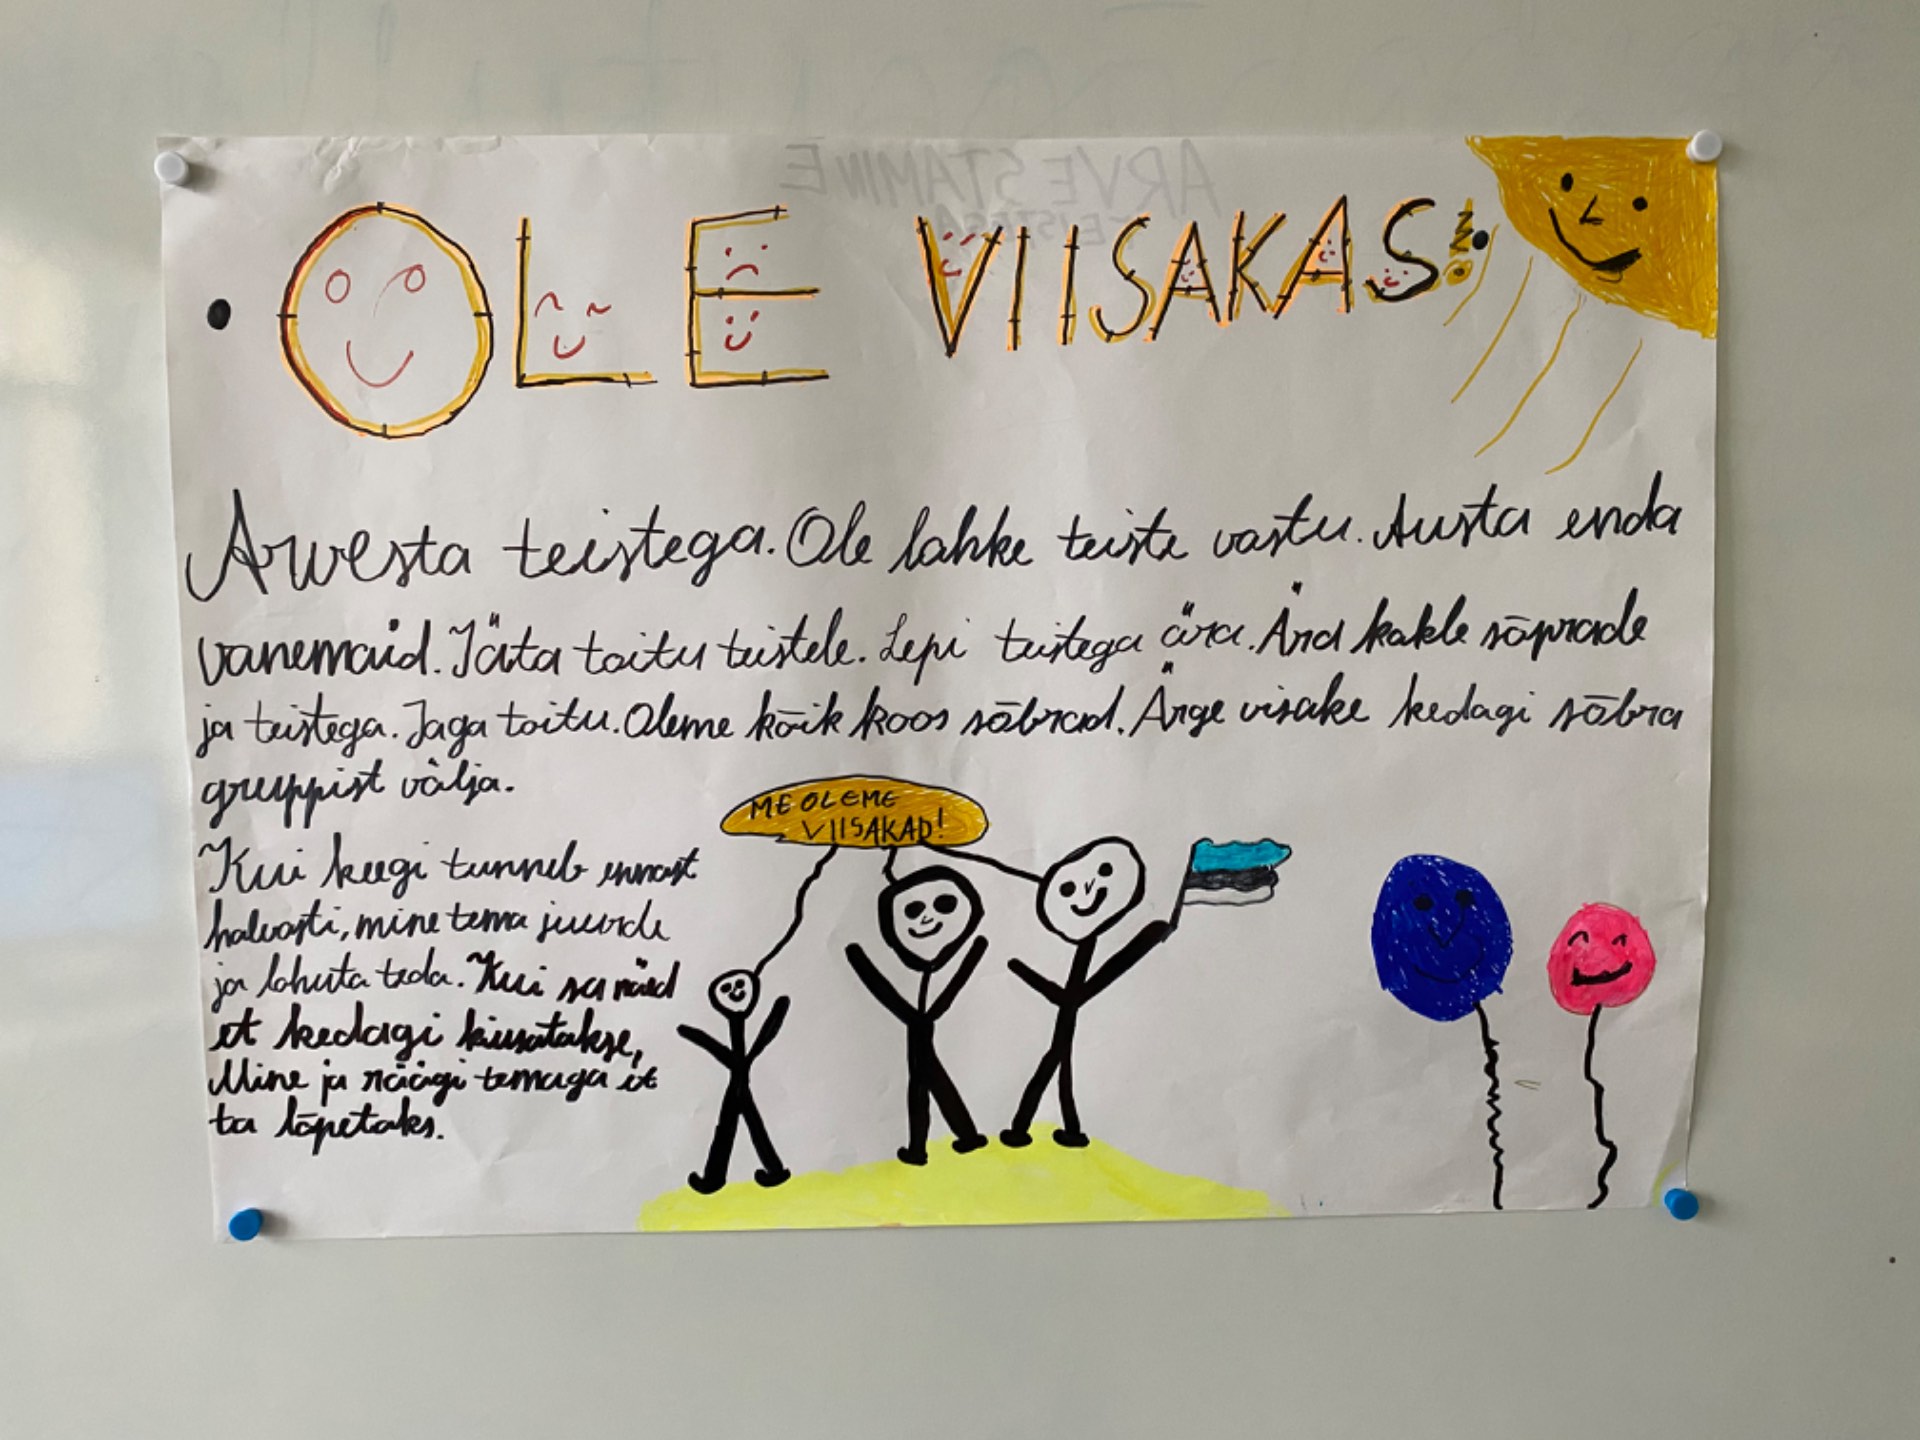 OLE VIISAKAS!
Arvesta teistega. Ole lahke teiste vastu. Austa enda
vanemaid. Jäta toitu teistele. Lepi teistega ära. Ära kakle sõprade
ja teistega. Jaga toitu. Oleme kõik koos sõbrad. Ärge visake kedagi sõbra
gruppist välja.
ME OLEME
VIISAKAD!
Kui keegi tunneb ennast
halvasti, mine tema juurde
ja lohuta teda. Kui sa näed
et kedagi kiusatakse,
Mine ja räägi temaga et
ta lõpetaks.
ARVESTAMINE
TEISTEGA